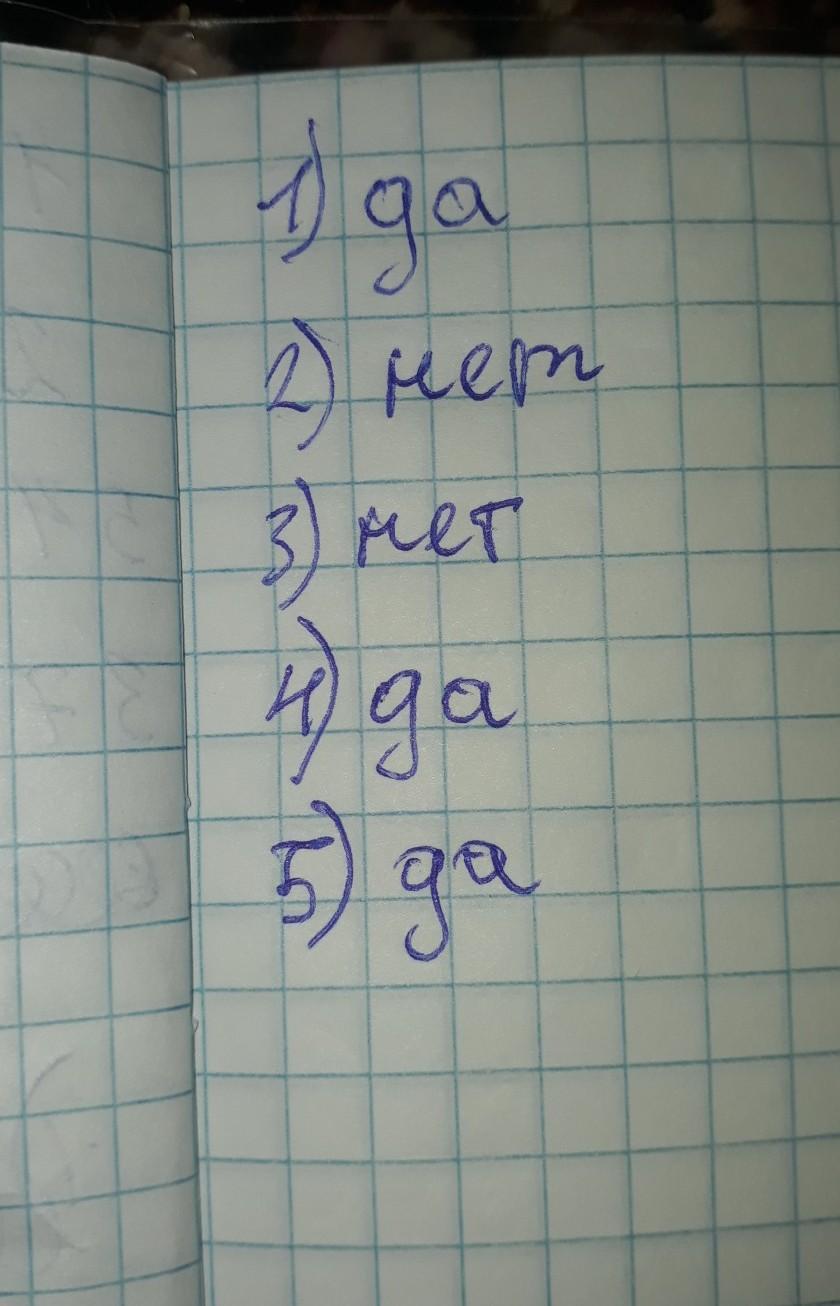 1) да
2) нет
3) нет
4) да
5) да